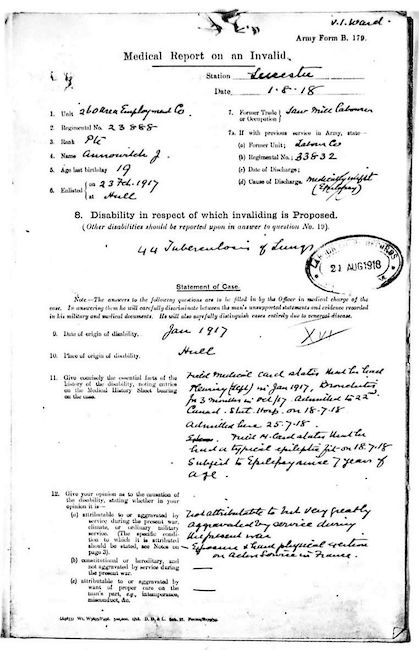 V.I. Ward
Army Form B. 179.
Medical Report on an Invalid.
Station Leicester
Date 1-8-18
1. Unit Area Employment Co
2. Regimental No. 23888
3. Rank Pte
4. Name J.
5. Age last birthday 19
6. Enlisted { on 23 Feb. 1917
at Hull
7. Former Trade or Occupation } Saw Mill Labourer
7a. If with previous service in Army, state—
(a) Former Unit; Labour Co
(b) Regimental No.; 33832
(c) Date of Discharge;
(d) Cause of Discharge. medically unfit
(Epilepsy)
8. Disability in respect of which invaliding is Proposed.
(Other disabilities should be reported upon in answer to question No. 19).
44 Tuberculosis of Lungs
21 AUG 1918
Statement of Case.
Note.—The answers to the following questions are to be filled in by the Officer in medical charge of the
case. In answering them he will carefully discriminate between the man's unsupported statements and evidence recorded
in his military and medical documents. He will also carefully distinguish cases entirely due to venereal disease.
9. Date of origin of disability. Jan 1917
XVI
10. Place of origin of disability. Hull
11. Give concisely the essential facts of the
history of the disability, noting entries
on the Medical History Sheet bearing
on the case.
Field Medical Card states that he had
Pleurisy (left) in Jan 1917, Bronchitis
for 3 months in Oct/17 Admitted to 22nd
Stat. Hosp. on 18-7-18
Admitted here 25-7-18.
Field M. Card states that he
had a typical epileptic fit on 18.7.18
Subject to Epilepsy since 7 years of
age.
12. Give your opinion as to the causation of
the disability, stating whether in your
opinion it is—
(a) attributable to or aggravated by
service during the present war,
climate, or ordinary military
service. (The specific condition
to which it is attributed
should be stated, see Notes on
page 3).
Not attributable to but very greatly
aggravated by service during
the present war
Exposure & hard physical exertion
on Active Service in France.
(b) constitutional or hereditary, and
not aggravated by service during
the present war.
—
(c) attributable to or aggravated by
want of proper care on the
man's part, e.g., intemperance,
misconduct, &c.
—